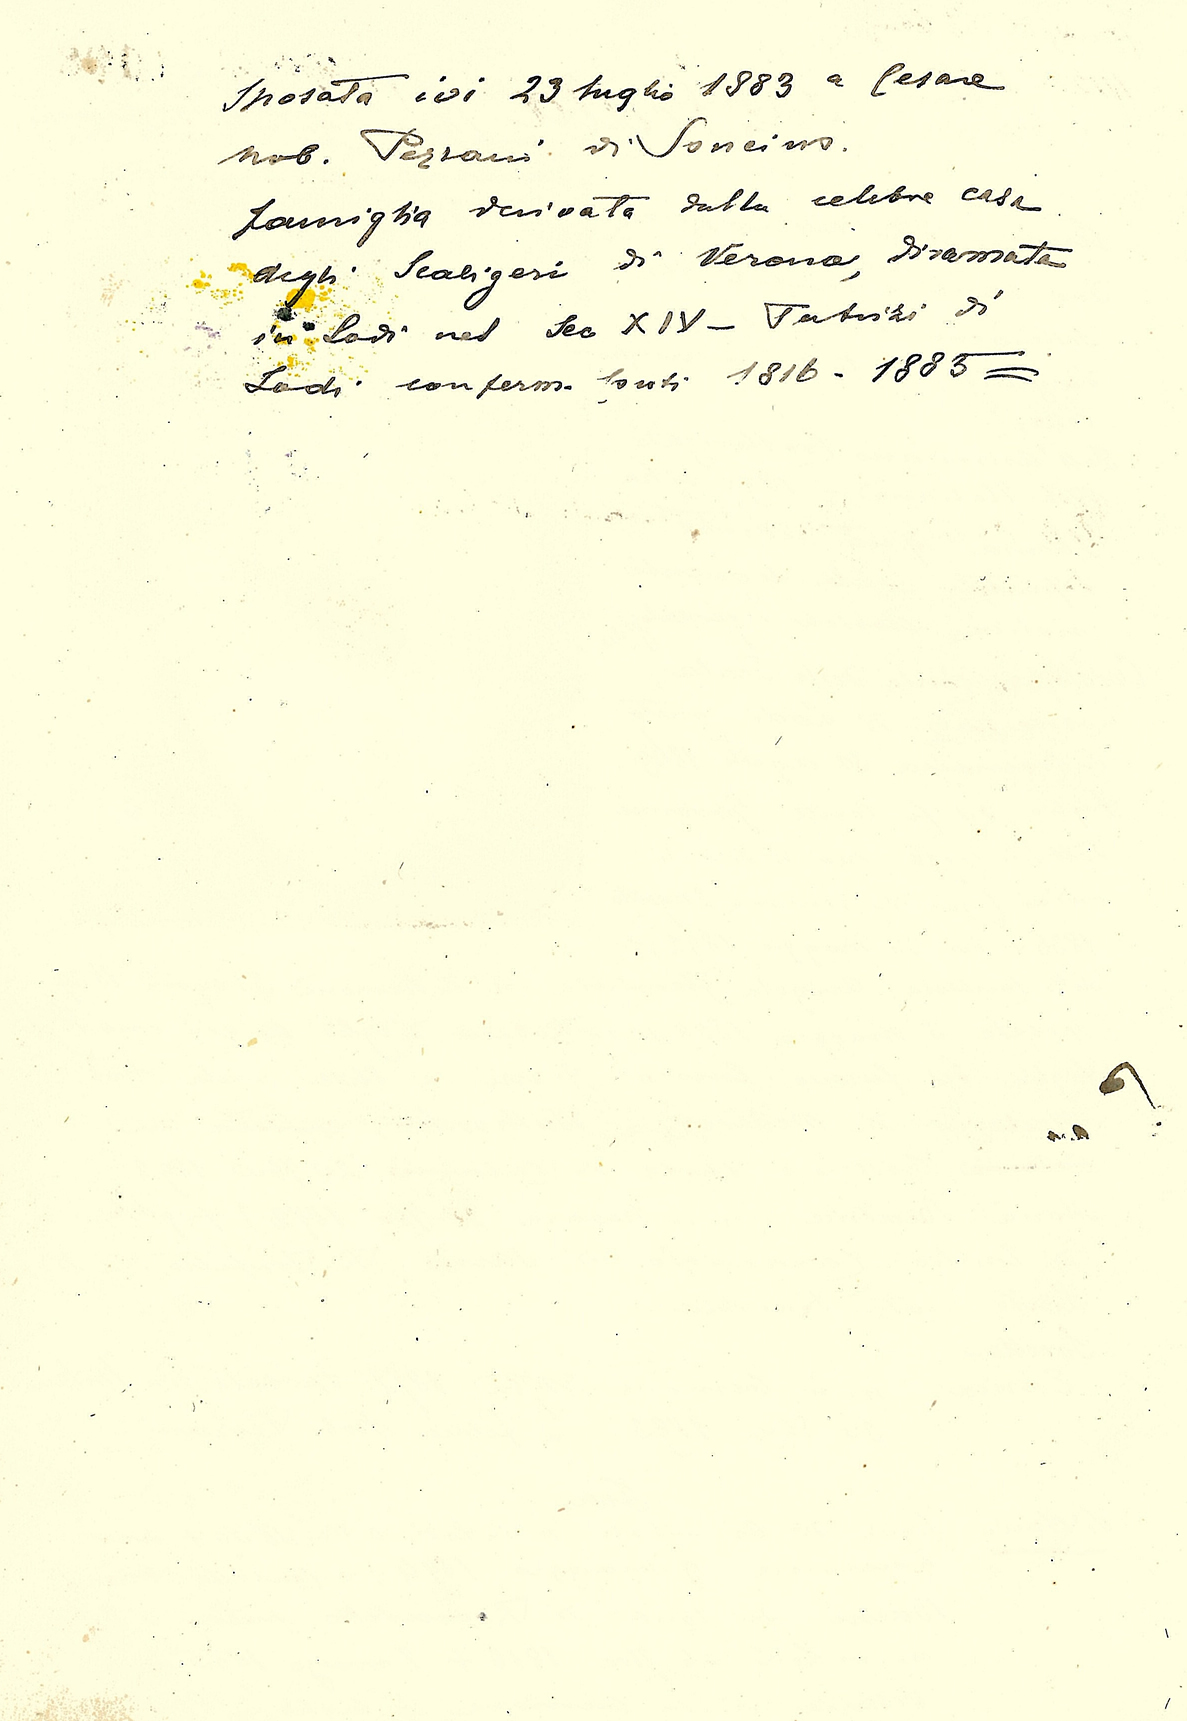 Sposata ivi 23 luglio 1883 a Cesare
nob. Pezzani di Soncino.
famiglia derivata dalla celebre casa
degli Scaligeri di Verona, diramata
in Lodi nel Sec XIV – Patrizi di
Lodi conferm. 1816 - 1885 =